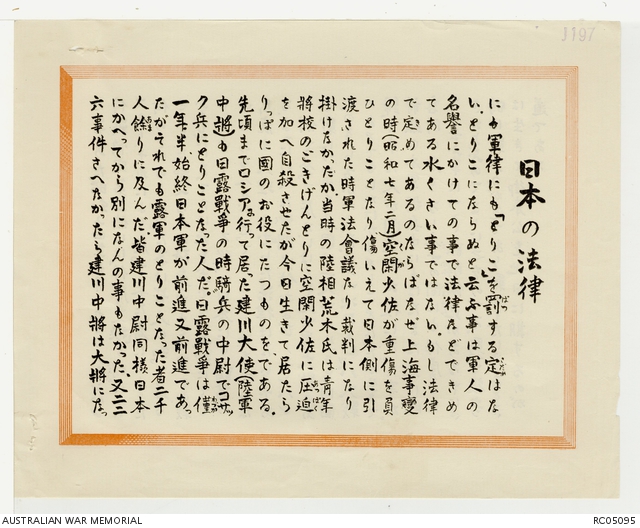 J197
日本の法律
にも軍律にも「とりこ」を罰する定はな
い。とりこにならぬと云ふ事は軍人の
名譽にかけての事で法律などできめ
てある水くさい事ではない。もし法律
で定めてあるのならばなぜ上海事變
の時(昭和七年二月)空閑少佐が重傷を負
ひとりことなり傷いえて日本側に引
渡された時軍法會議なり裁判になり
掛けなかつたか。当時の陸相荒木氏は青年
將校のごきげんとりに空閑少佐に圧迫
を加へ自殺させたが今日生きて居たら
りつぱに國のお役にたつものを、である。
先頃までロシア行つて居た建川大使陸軍
中將も日露戰爭の時騎兵の中尉でコサツ
ク兵にとりことなつた人だ。日露戰爭は僅
一年半、始終日本軍が前進又前進であつ
たがそれでも露軍のとりことなつた者二千
人餘りに及んだ。皆建川中尉同様日本
にかへつてから別になんの事もなかつた。又二二
六事件さへなかつたら建川中將は大將になつ
AUSTRALIAN WAR MEMORIAL
RC05095